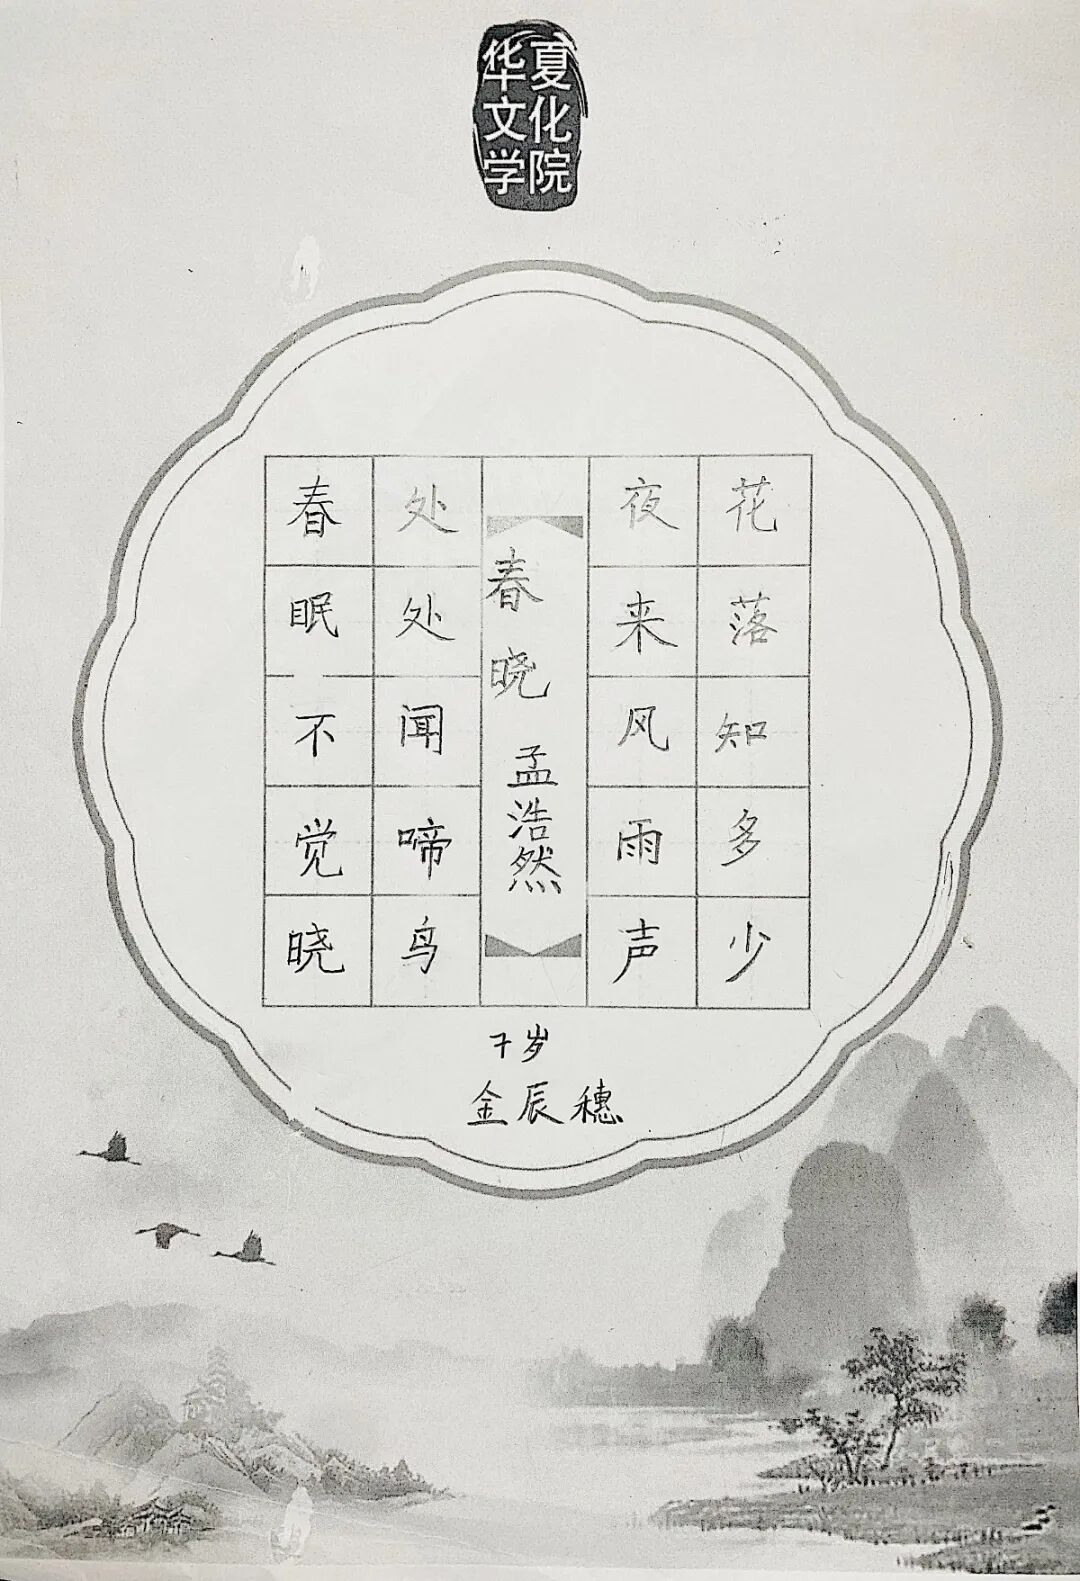 华夏
文化
学院
春眠不觉晓
处处闻啼鸟
春晓 孟浩然
夜来风雨声
花落知多少
7岁
金辰穗